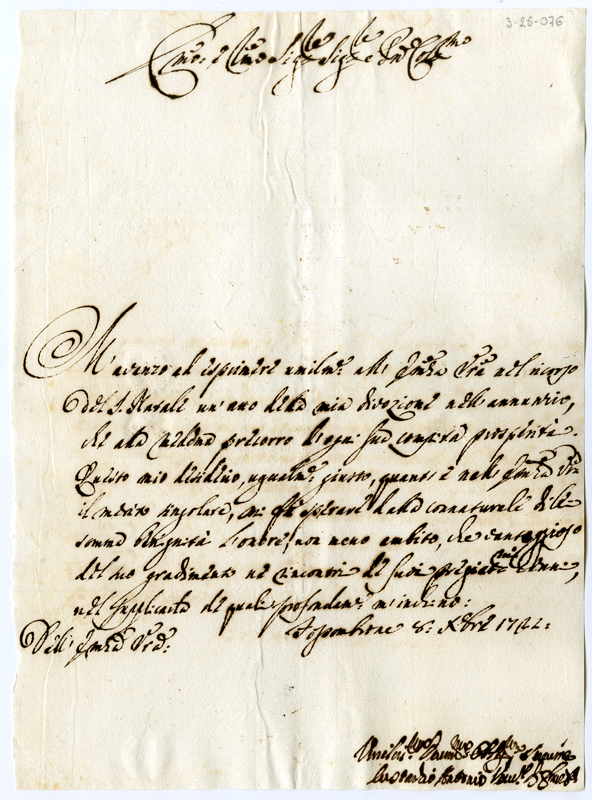 3-26-076
Emo: e Rmo Sigre Sigre e Pne Colmo
M'avanzo ad esprimere umilmte: all' Emza Vra nel ricorso
del S. Natale un'atto della mia divozione nell'annuncio,
che alla medma precorro d'ogni sua compita prosperità.
Questo mio desiderio, ugualmte: giusto, quant'è nell' Emza Vra
il merito singolare, mi fà sperare dalla connaturale di lei
somma benignità l'onore, non meno ambito, che vantaggioso
del suo gradimento ne rincontri de suoi pregiatmi comandi,
nel supplicarla de quali profondamte: m'inchino:
Fossombrone 8: Xbre 1742:
Dell' Emza Vra:
Umiliss: Devmo Obblmo Servitore
Antonio